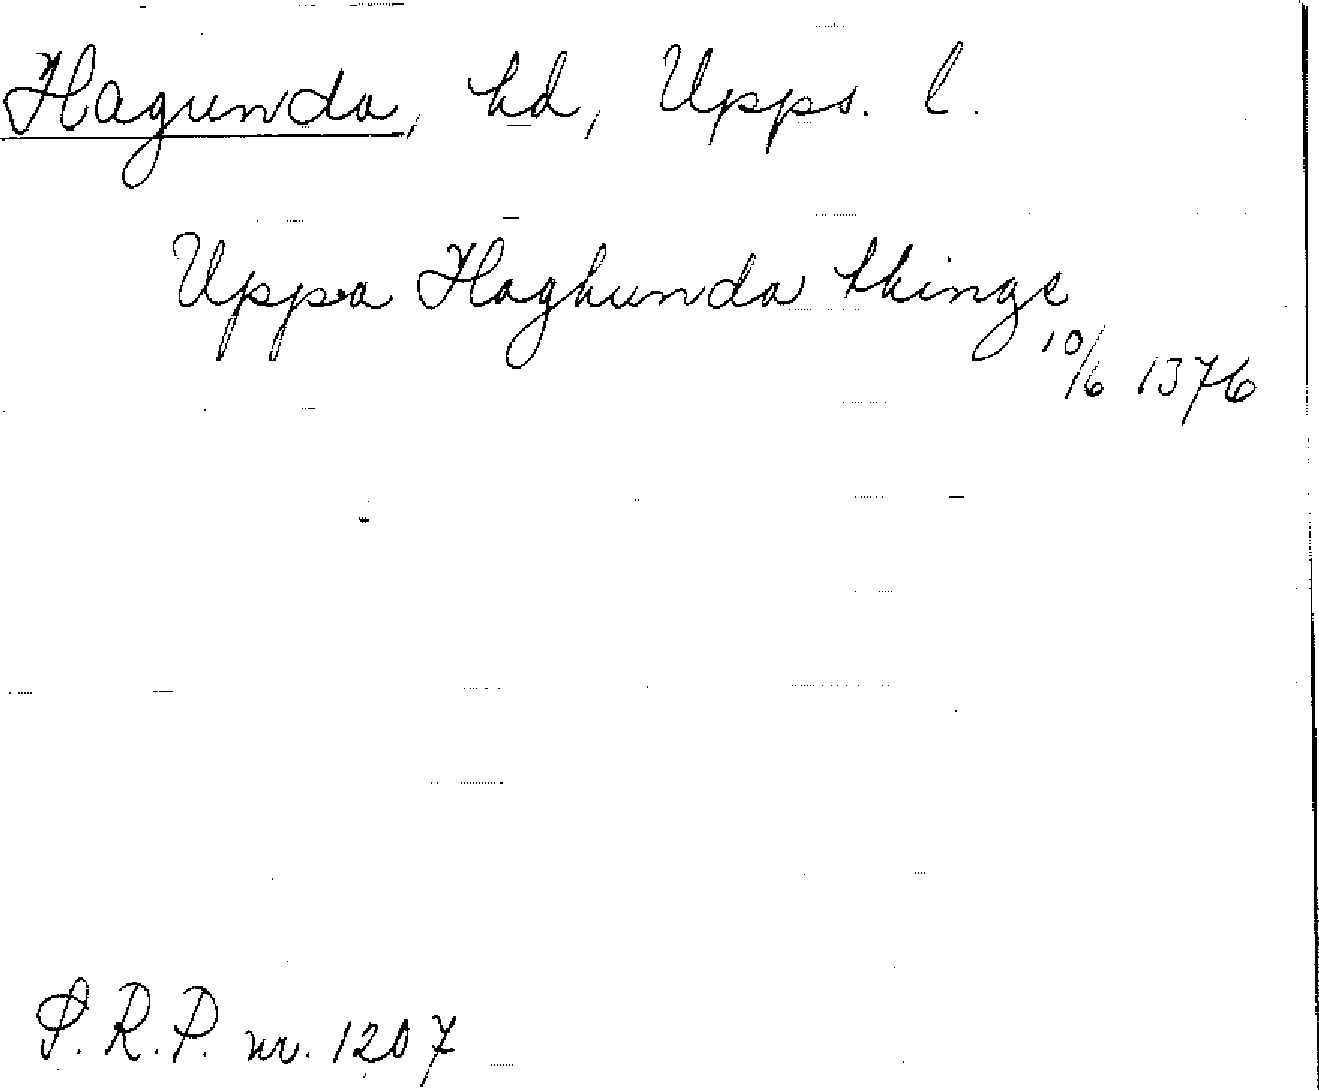 Hagunda, hd, Upps. l.
Uppa Haghunda thinge
10/6 1376
S.R.P. nr. 1207